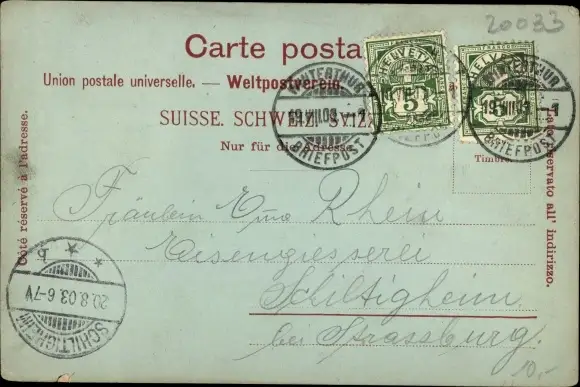 20033
Carte posta
Union postale universelle. — Weltpostverein.
SUISSE. SCHWEIZ. SVIZ
Nur für die Adresse.
Côté réservé à l'adresse.
Lato riservato all' indirizzo.
Timbre.
HELVETIA
5
HELVETIA
5
WINTERTHUR
19.VIII.03.
BRIEFPOST
WINTERTHUR
19.VIII.03 1
BRIEFPOST
Fräulein Rhein
Eisengiesserei
Schiltigheim
bei Strassburg.
SCHILTIGHEIM
20.8.03.6-7V
b
10,-